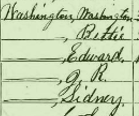 Washington, Washington
——, Bettie
——, Edward
——, J. R.
——, Sidney